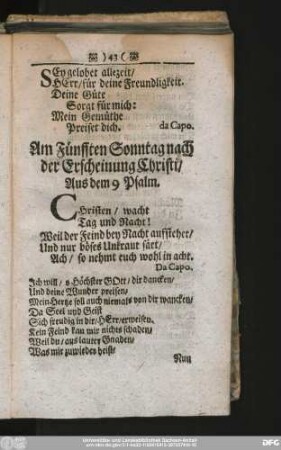 ) 43 (
SEy gelobet allezeit/
HErr/ für deine Freundligkeit.
Deine Güte
Sorgt für mich:
Mein Gemüthe
Preiset dich. da Capo.
Am Fünfften Sonntag nach
der Erscheinung Christi/
Aus dem 9 Psalm.
CHristen/ wacht
Tag und Nacht!
Weil der Feind bey Nacht auffsteher/
Und nur böses Unkraut säet/
Ach/ so nehmt euch wohl in acht.
Da Capo.
Ich will/ o Höchster GOtt/ dir dancken/
Und deine Wunder preisen/
Mein Hertze soll auch niemals von dir wancken/
Da Seel und Geist
Sich freudig in dir/ HErr/ erweisen.
Kein Feind kan mir nichts schaden/
Weil du/ aus lauter Gnaden/
Was mir zuwieder heist/
Nun